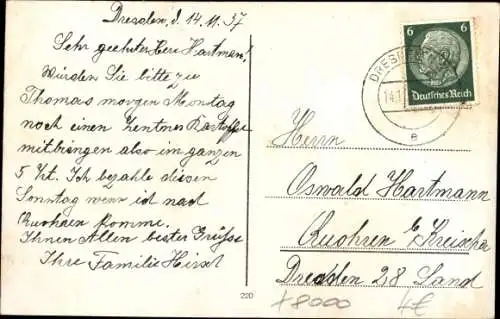 Dresden, d. 14.11.37
Sehr geehrter Herr Hartman!
Würden Sie bitte zu
Thomas morgen Montag
noch einen Zentner Kartoffe
mitbringen also im ganzen
5 Ztr. Ich bezahle diesen
Sonntag wenn ich nach
Quohren komme.
Ihnen Allen bester Grüsse
Ihre Familie Hirsch
6 6
Deutsches Reich
DRESDEN
14.11
e
Herrn
Oswald Hartmann
Quohren b/ Kreischa
Dresden 28 Land
220
+8000 4€